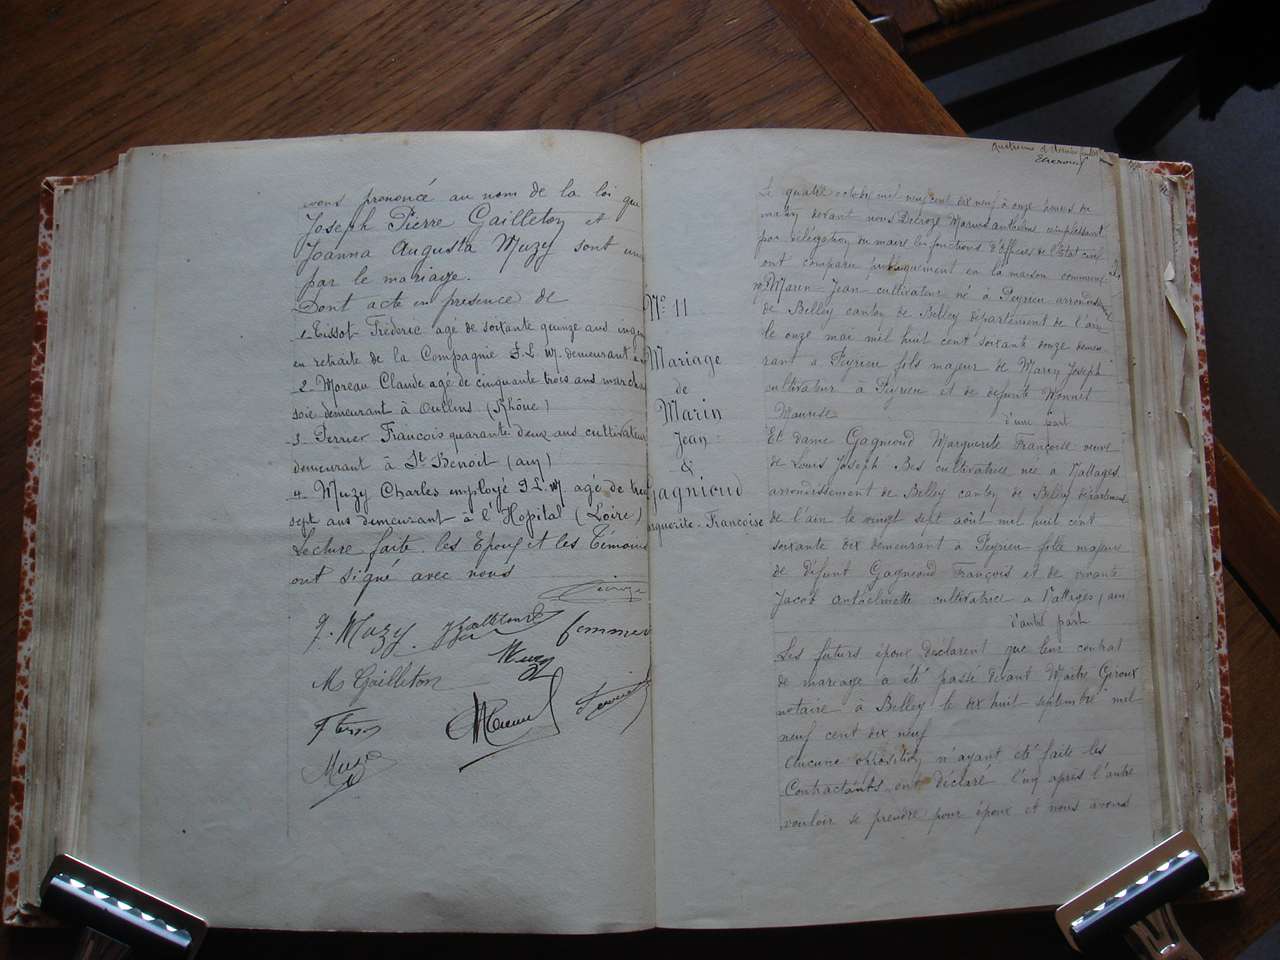 vous prononcé au nom de la loi que
Joseph Pierre Gailleton et
Joanna Augusta Muzy sont unis
par le mariage.
Dont acte en présence de
1. Tissot Fréderic agé de soixante quinze ans
en retraite de la Compagnie P. L. M. demeurant à
2. Moreau Claude agé de cinquante trois ans
soie demeurant à Oullins (Rhône)
3. Perrier Francois quarante deux ans cultivateur
demeurant à St Benoit (ain)
4. Muzy Charles employé P. L. M. agé de
sept ans demeurant à l'Hopital (Loire)
Lecture faite les Epoux et les Témoins
ont signé avec nous
J. Muzy
Muzy
M Gailleton
Muzy
Nº 11
Mariage
de
Marin
Jean
&
Gagnioud
Marguerite-Francoise
Quatrieme et dernier feuillet
Le quatre octobre mil neuf cent dix neuf à onze heures du
matin devant nous Delroze Marius anthelme remplissant
par délégation du maire les fonctions d'Officier de l'Etat civil
ont comparu publiquement en la maison commune
Marin Jean cultivateur né à Peyrieu arrondis
de Belley canton de Belley département de l'ain
le onze mai mil huit cent soixante douze demeu
rant à Peyrieu fils majeur de Marin Joseph
cultivateur à Peyrieu et de defunte Monnet
Maurise
d'une part
Et dame Gagnioud Marguerite Françoise veuve
de Louis Joseph Bes cultivatrice née à Nattages
arrondissement de Belley canton de Belley département
de l'ain le vingt sept août mil huit cent
soixante dix demeurant à Peyrieu fille majeure
de défunt Gagnioud François et de vivante
Jacob Anthelmette cultivatrice à Nattages, ain
d'autre part
Les futurs époux déclarent que leur contrat
de mariage a été passé devant Maitre Giroux
notaire à Belley le dix huit septembre mil
neuf cent dix neuf
Aucune opposition n'ayant été faite les
Contractants ont déclaré l'un après l'autre
vouloir se prendre pour époux et nous avons